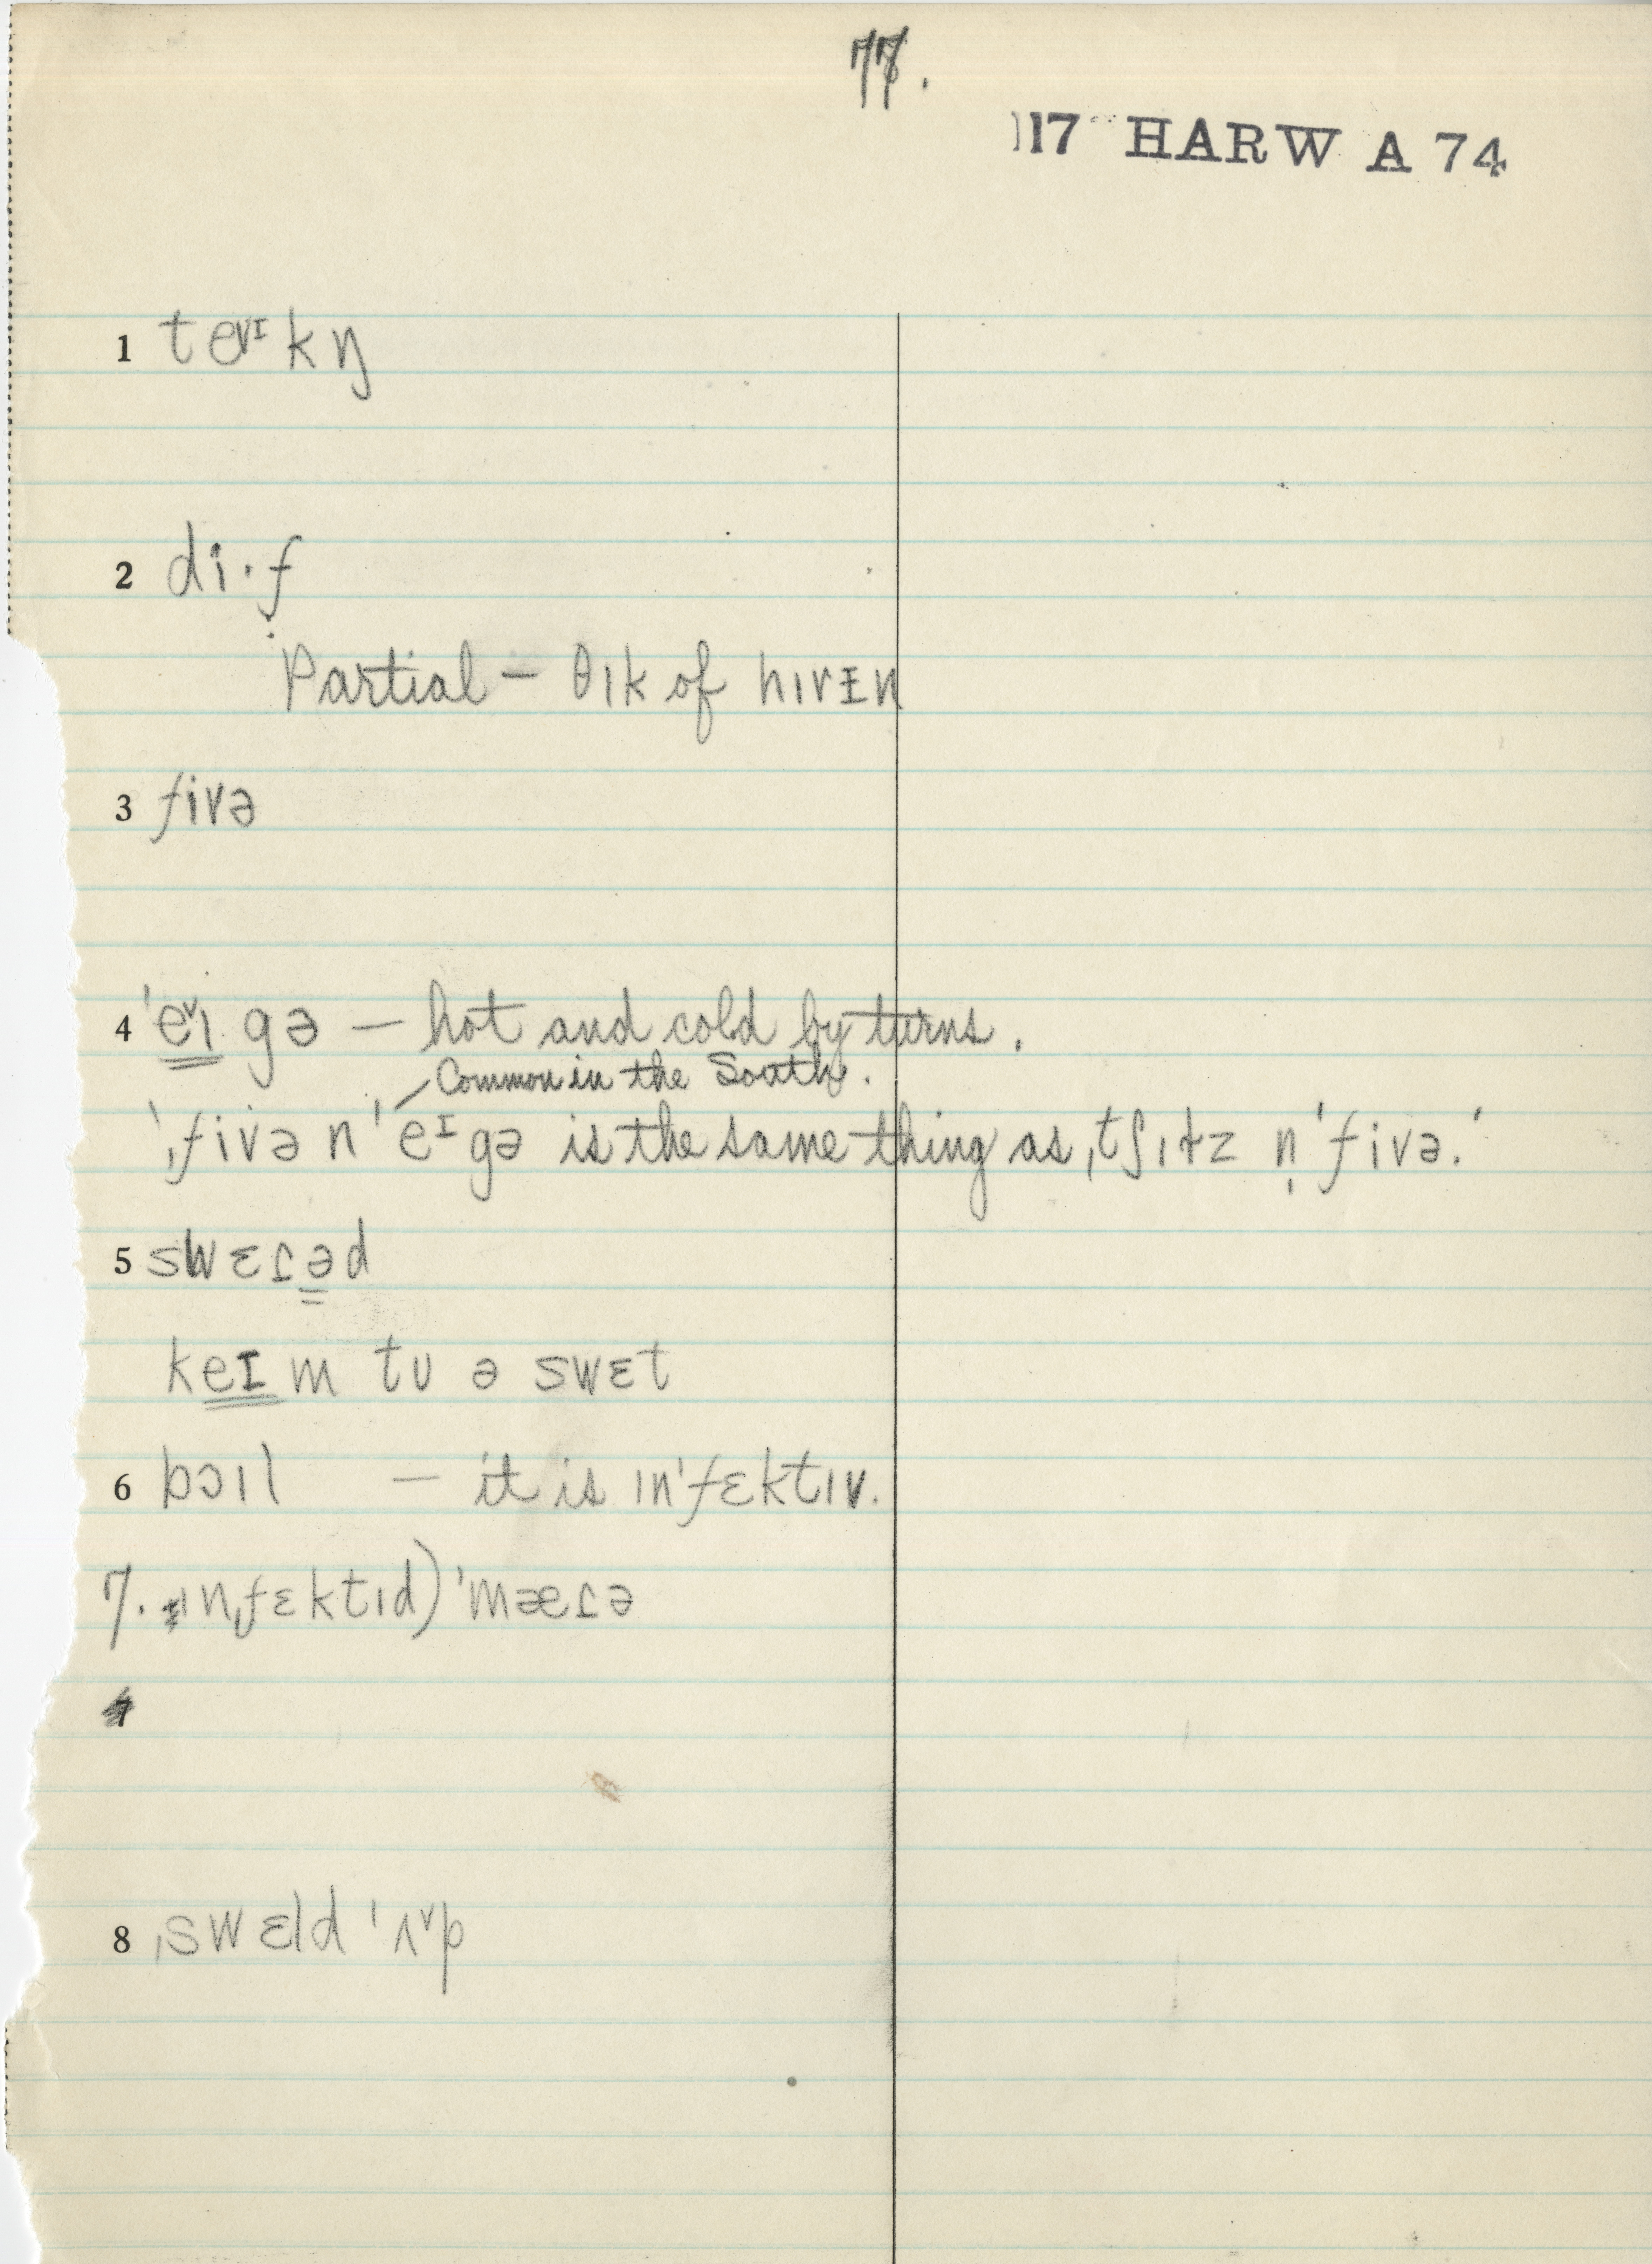 77.
117 HARW A 74
1 te˅ᶦkŋ
2 di·f
Partial – θɪk of hɪrɪn
3 fivə
4 ˈe˅ɪgə — hot and cold by turns.
– Common in the South.
'ˌfivə n ˈeᶦgə is the same thing as ˌtʃɪɫz n̩ ˈfivə.'
5 swɛɾəd
keɪm tʊ ə swɛt
6 bɔɪl — it is ɪnˈfɛktɪv.
7. ɪnˌfɛktɪd) ˈmæɾə
7
8 ˌswɛld ˈʌ˅p